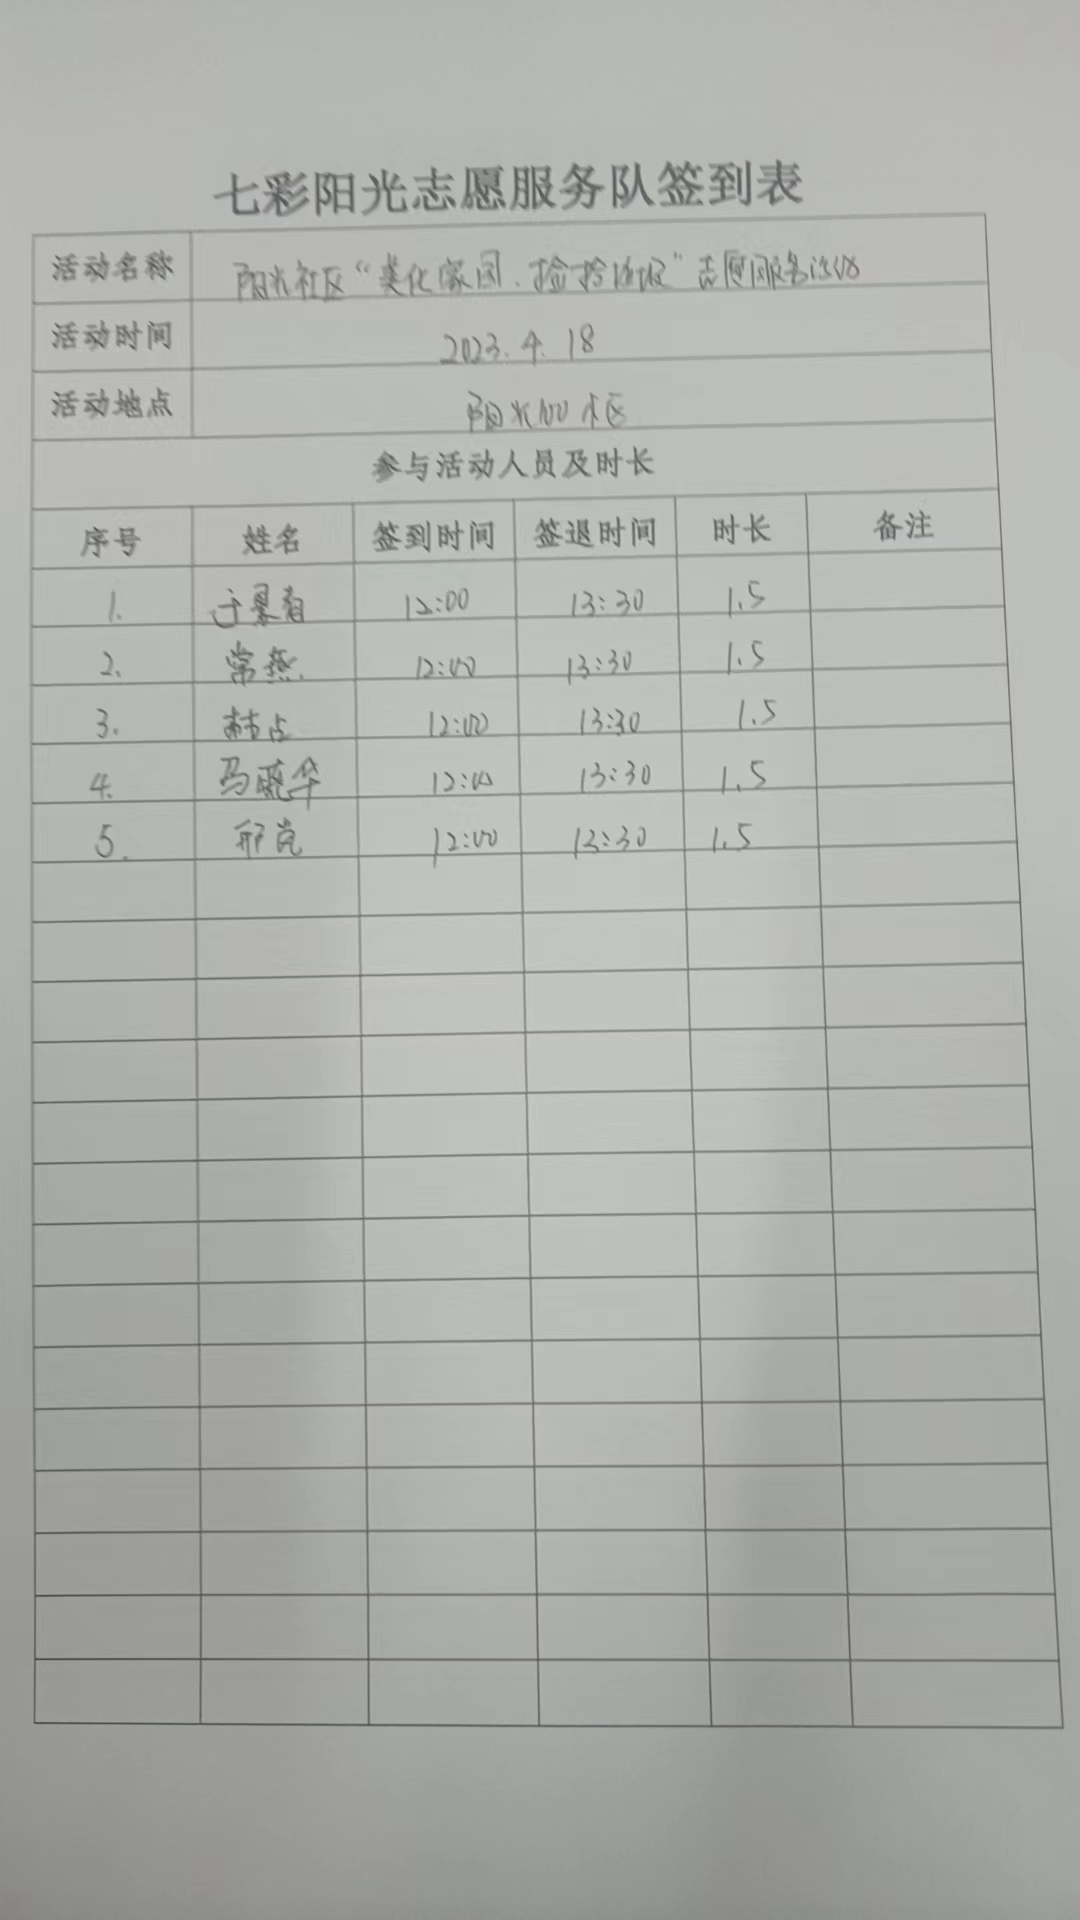 七彩阳光志愿服务队签到表
活动名称 阳光社区“美化家园.捡拾垃圾”志愿服务活动
活动时间 2023.4.18
活动地点 阳光100小区
参与活动人员及时长
序号 姓名 签到时间 签退时间 时长 备注
1. 12:00 13:30 1.5
2. 常燕 12:00 13:30 1.5
3. 12:00 13:30 1.5
4. 马晓华 12:00 13:30 1.5
5. 12:00 13:30 1.5